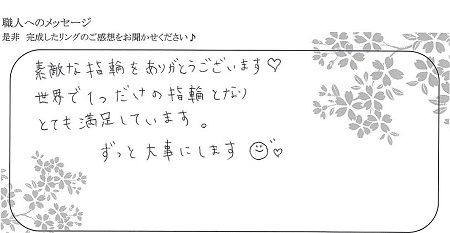 職人へのメッセージ
是非　完成したリングのご感想をお聞かせください♪
素敵な指輪をありがとうございます♡
世界で1つだけの指輪となり
とても満足しています。
ずっと大事にします